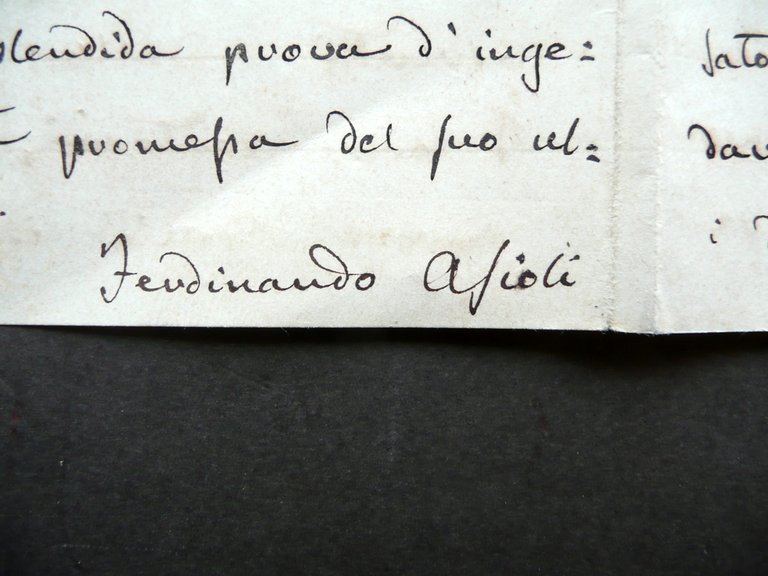 splendida prova d'inge=
promessa del suo ul=
Ferdinando Asioli
sato
dav
i